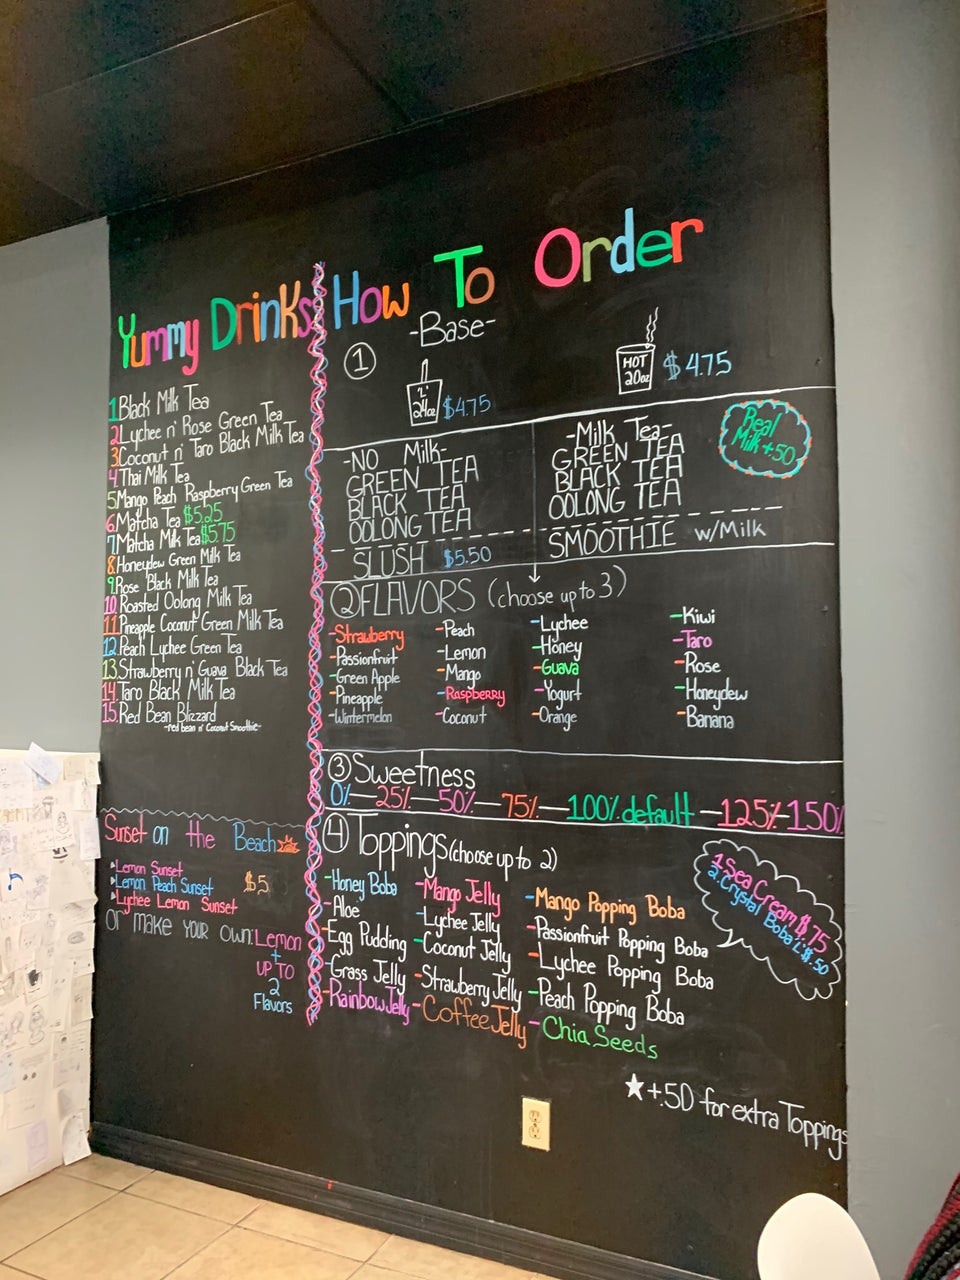 Yummy Drinks
1 Black Milk Tea
2 Lychee n' Rose Green Tea
3 Coconut n' Taro Black Milk Tea
4 Thai Milk Tea
5 Mango Peach Raspberry Green Tea
6 Matcha Tea $5.25
7 Matcha Milk Tea $5.75
8 Honeydew Green Milk Tea
9 Rose Black Milk Tea
10 Roasted Oolong Milk Tea
11 Pineapple Coconut Green Milk Tea
12 Peach Lychee Green Tea
13 Strawberry n' Guava Black Tea
14 Taro Black Milk Tea
15 Red Bean Blizzard
-red bean n' Coconut Smoothie-
Sunset on the Beach
Lemon Sunset
Lemon Peach Sunset
Lychee Lemon Sunset
$5
or make your own: Lemon
+
UP TO
2
Flavors
How To Order
1 -Base-
"L"
24oz $4.75
HOT
20oz $4.75
Real
Milk +.50
-NO Milk-
GREEN TEA
BLACK TEA
OOLONG TEA
SLUSH $5.50
-Milk Tea-
GREEN TEA
BLACK TEA
OOLONG TEA
SMOOTHIE w/Milk
2 FLAVORS (choose up to 3)
-Strawberry
-Passionfruit
-Green Apple
-Pineapple
-Wintermelon
-Peach
-Lemon
-Mango
-Raspberry
-Coconut
-Lychee
-Honey
-Guava
-Yogurt
-Orange
-Kiwi
-Taro
-Rose
-Honeydew
-Banana
3 Sweetness
0%-25%-50%-75%-100% default-125%-150%
4 Toppings (choose up to 2)
-Honey Boba
-Aloe
-Egg Pudding
-Grass Jelly
-Rainbow Jelly
-Mango Jelly
-Lychee Jelly
-Coconut Jelly
-Strawberry Jelly
-Coffee Jelly
-Mango Popping Boba
-Passionfruit Popping Boba
-Lychee Popping Boba
-Peach Popping Boba
-Chia Seeds
1. Sea Cream $.75
2. Crystal Boba : $.50
★ +.50 for extra Toppings